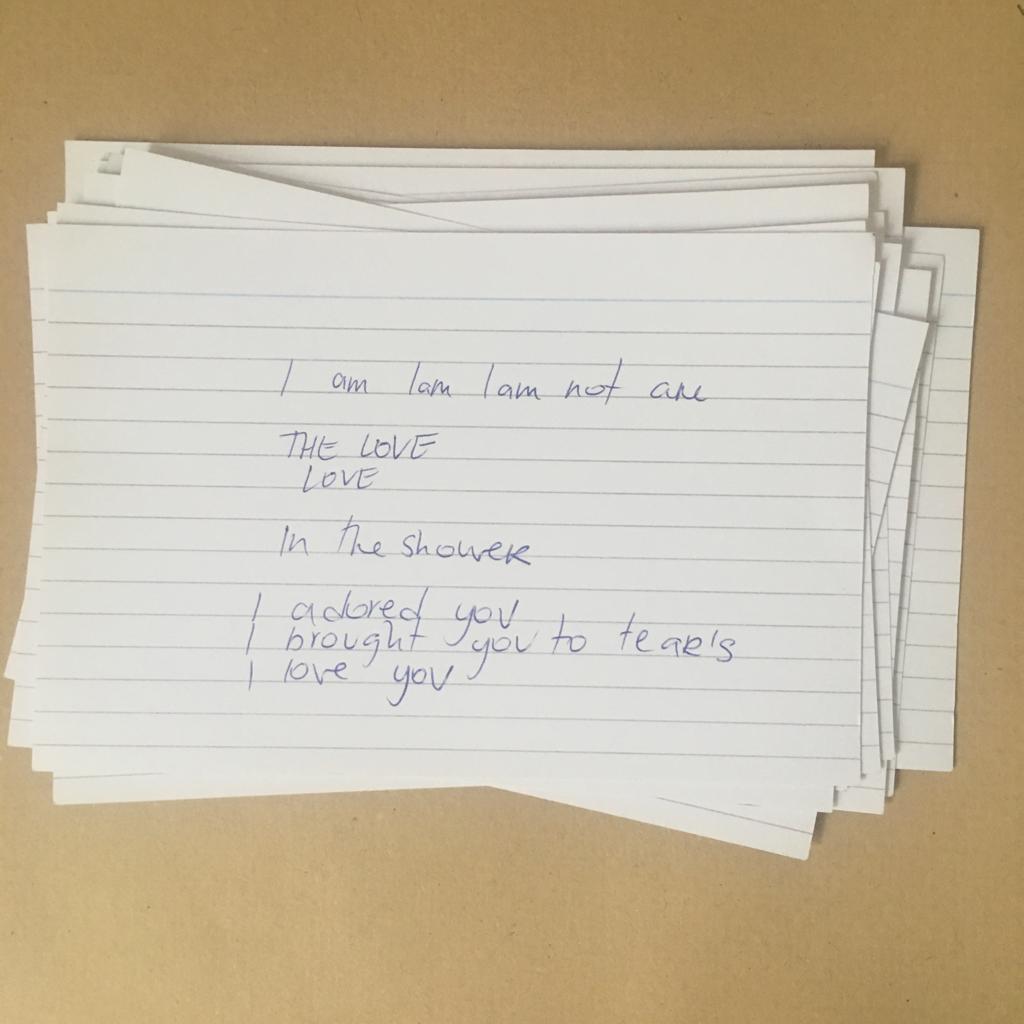 I am I am I am not are
THE LOVE
LOVE
In the shower
I adored you
I brought you to tear's
I love you